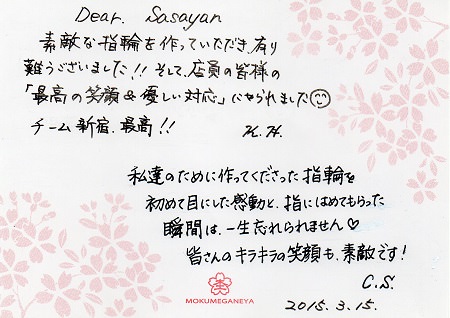 Dear. Sasayan
素敵な指輪を作っていただき、有り
難うございました!! そして、店員の皆様の
「最高の笑顔&優しい対応」にやられました☺
チーム新宿、最高!! K.H.
私達のために作ってくださった指輪を
初めて目にした感動と、指にはめてもらった
瞬間は、一生忘れられません♡
皆さんのキラキラの笑顔も、素敵です!
C.S.
2015.3.15.
MOKUMEGANEYA